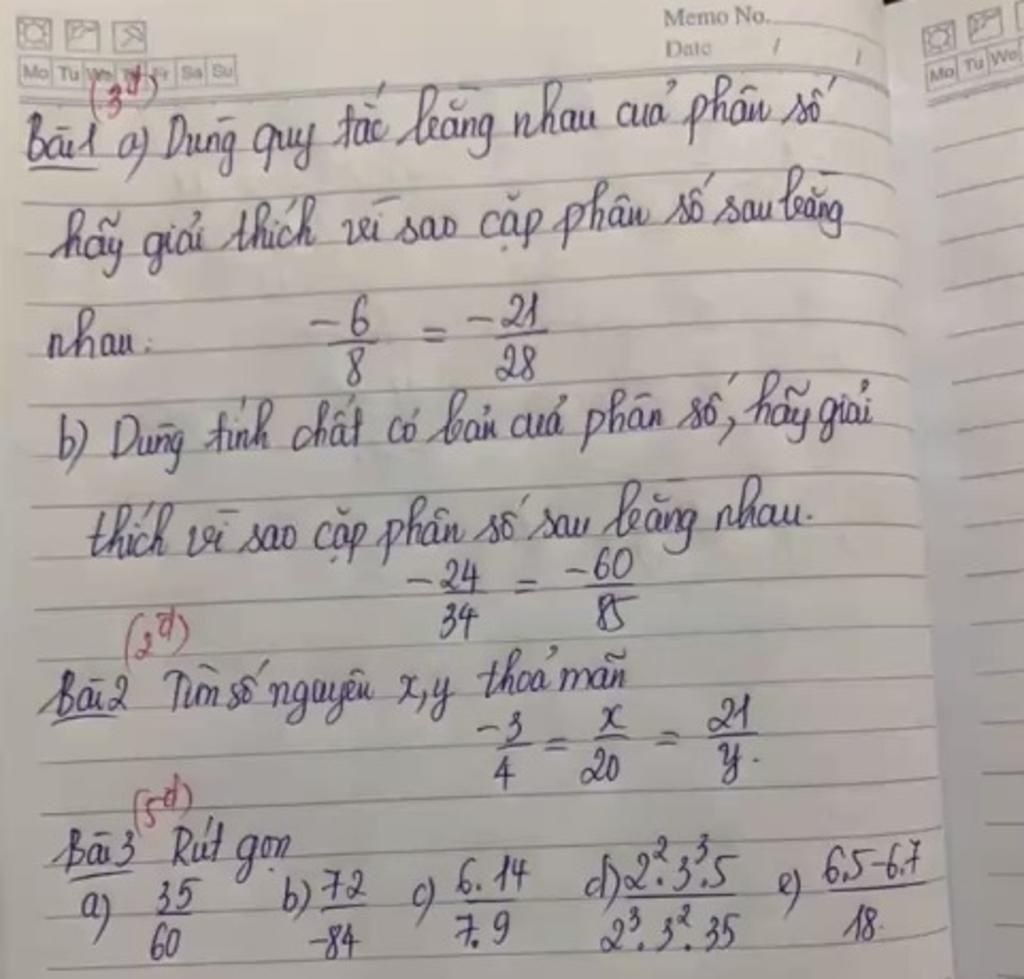 Memo No.
Date / /
Mo Tu We Th Fr Sa Su
Mo Tu We
(3đ)
Bài 1 a) Dùng quy tắc bằng nhau của phân số
hãy giải thích vì sao cặp phân số sau bằng
nhau: -6/8 = -21/28
b) Dùng tính chất cơ bản của phân số, hãy giải
thích vì sao cặp phân số sau bằng nhau.
-24/34 = -60/85
(2đ)
Bài 2 Tìm số nguyên x, y thoả mãn
-3/4 = x/20 = 21/y.
(5đ)
Bài 3 Rút gọn
a) 35/60 b) 72/-84 c) 6.14/7.9 d) 2².3³.5/2³.3².35 e) 6.5-6.7/18.